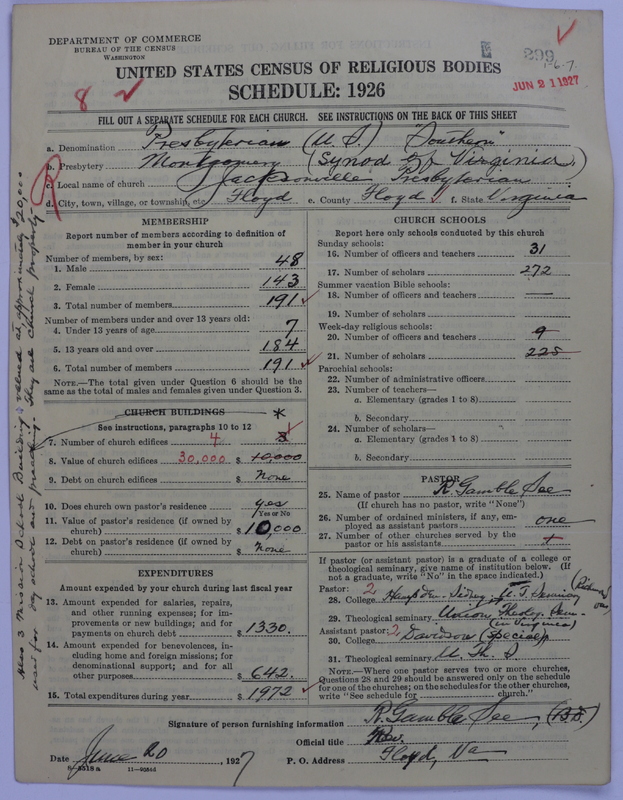 DEPARTMENT OF COMMERCE
BUREAU OF THE CENSUS
WASHINGTON
299
1-6-7.
JUN 21 1927
UNITED STATES CENSUS OF RELIGIOUS BODIES
8
SCHEDULE: 1926
FILL OUT A SEPARATE SCHEDULE FOR EACH CHURCH. SEE INSTRUCTIONS ON THE BACK OF THIS SHEET
a. Denomination Presbyterian (U.S.) "Southern"
b. Presbytery Montgomery (Synod of Virginia)
c. Local name of church Jacksonville Presbyterian
d. City, town, village, or township, etc Floyd e. County Floyd f. State Virginia
MEMBERSHIP
Report number of members according to definition of
member in your church
Number of members, by sex:
1. Male 48
2. Female 143
3. Total number of members 191
Number of members under and over 13 years old:
4. Under 13 years of age 7
5. 13 years old and over 184
6. Total number of members 191
NOTE.—The total given under Question 6 should be the
same as the total of males and females given under Question 3.
CHURCH BUILDINGS *
See instructions, paragraphs 10 to 12
7. Number of church edifices 4
8. Value of church edifices 30,000 $ 10,000
9. Debt on church edifices $ None
10. Does church own pastor's residence yes
Yes or No
11. Value of pastor's residence (if owned by
church) $ 10,000
12. Debt on pastor's residence (if owned by
church) $ None
EXPENDITURES
Amount expended by your church during last fiscal year
13. Amount expended for salaries, repairs,
and other running expenses; for im-
provements or new buildings; and for
payments on church debt $ 1330.
14. Amount expended for benevolences, in-
cluding home and foreign missions; for
denominational support; and for all
other purposes $ 642.
15. Total expenditures during year $ 1972
CHURCH SCHOOLS
Report here only schools conducted by this church
Sunday schools:
16. Number of officers and teachers 31
17. Number of scholars 272
Summer vacation Bible schools:
18. Number of officers and teachers —
19. Number of scholars
Week-day religious schools:
20. Number of officers and teachers 9
21. Number of scholars 225
Parochial schools:
22. Number of administrative officers
23. Number of teachers—
a. Elementary (grades 1 to 8)
b. Secondary
24. Number of scholars—
a. Elementary (grades 1 to 8)
b. Secondary
PASTOR
25. Name of pastor R. Gamble See
(If church has no pastor, write "None")
26. Number of ordained ministers, if any, em-
ployed as assistant pastors one
27. Number of other churches served by the
pastor or his assistants
If pastor (or assistant pastor) is a graduate of a college or
theological seminary, give name of institution below. (If
not a graduate, write "No" in the space indicated.)
Pastor: 2
28. College Hampden Sidney
29. Theological seminary Union Theolog. Sem.
(in Virginia)
Assistant pastor: 2
30. College Davidson (Special)
31. Theological seminary U. Th. S
NOTE.—Where one pastor serves two or more churches,
Questions 28 and 29 should be answered only on the schedule
for one of the churches; on the schedules for the other churches,
write "See schedule for church."
Signature of person furnishing information R. Gamble See, (B.D.)
Official title Rev.
Date June 20, 1927 P. O. Address Floyd, Va
8—5518 a 11—9364d
Also 3 Mission School Buildings valued at approximately $20,000
used for day school and preaching. They are church property